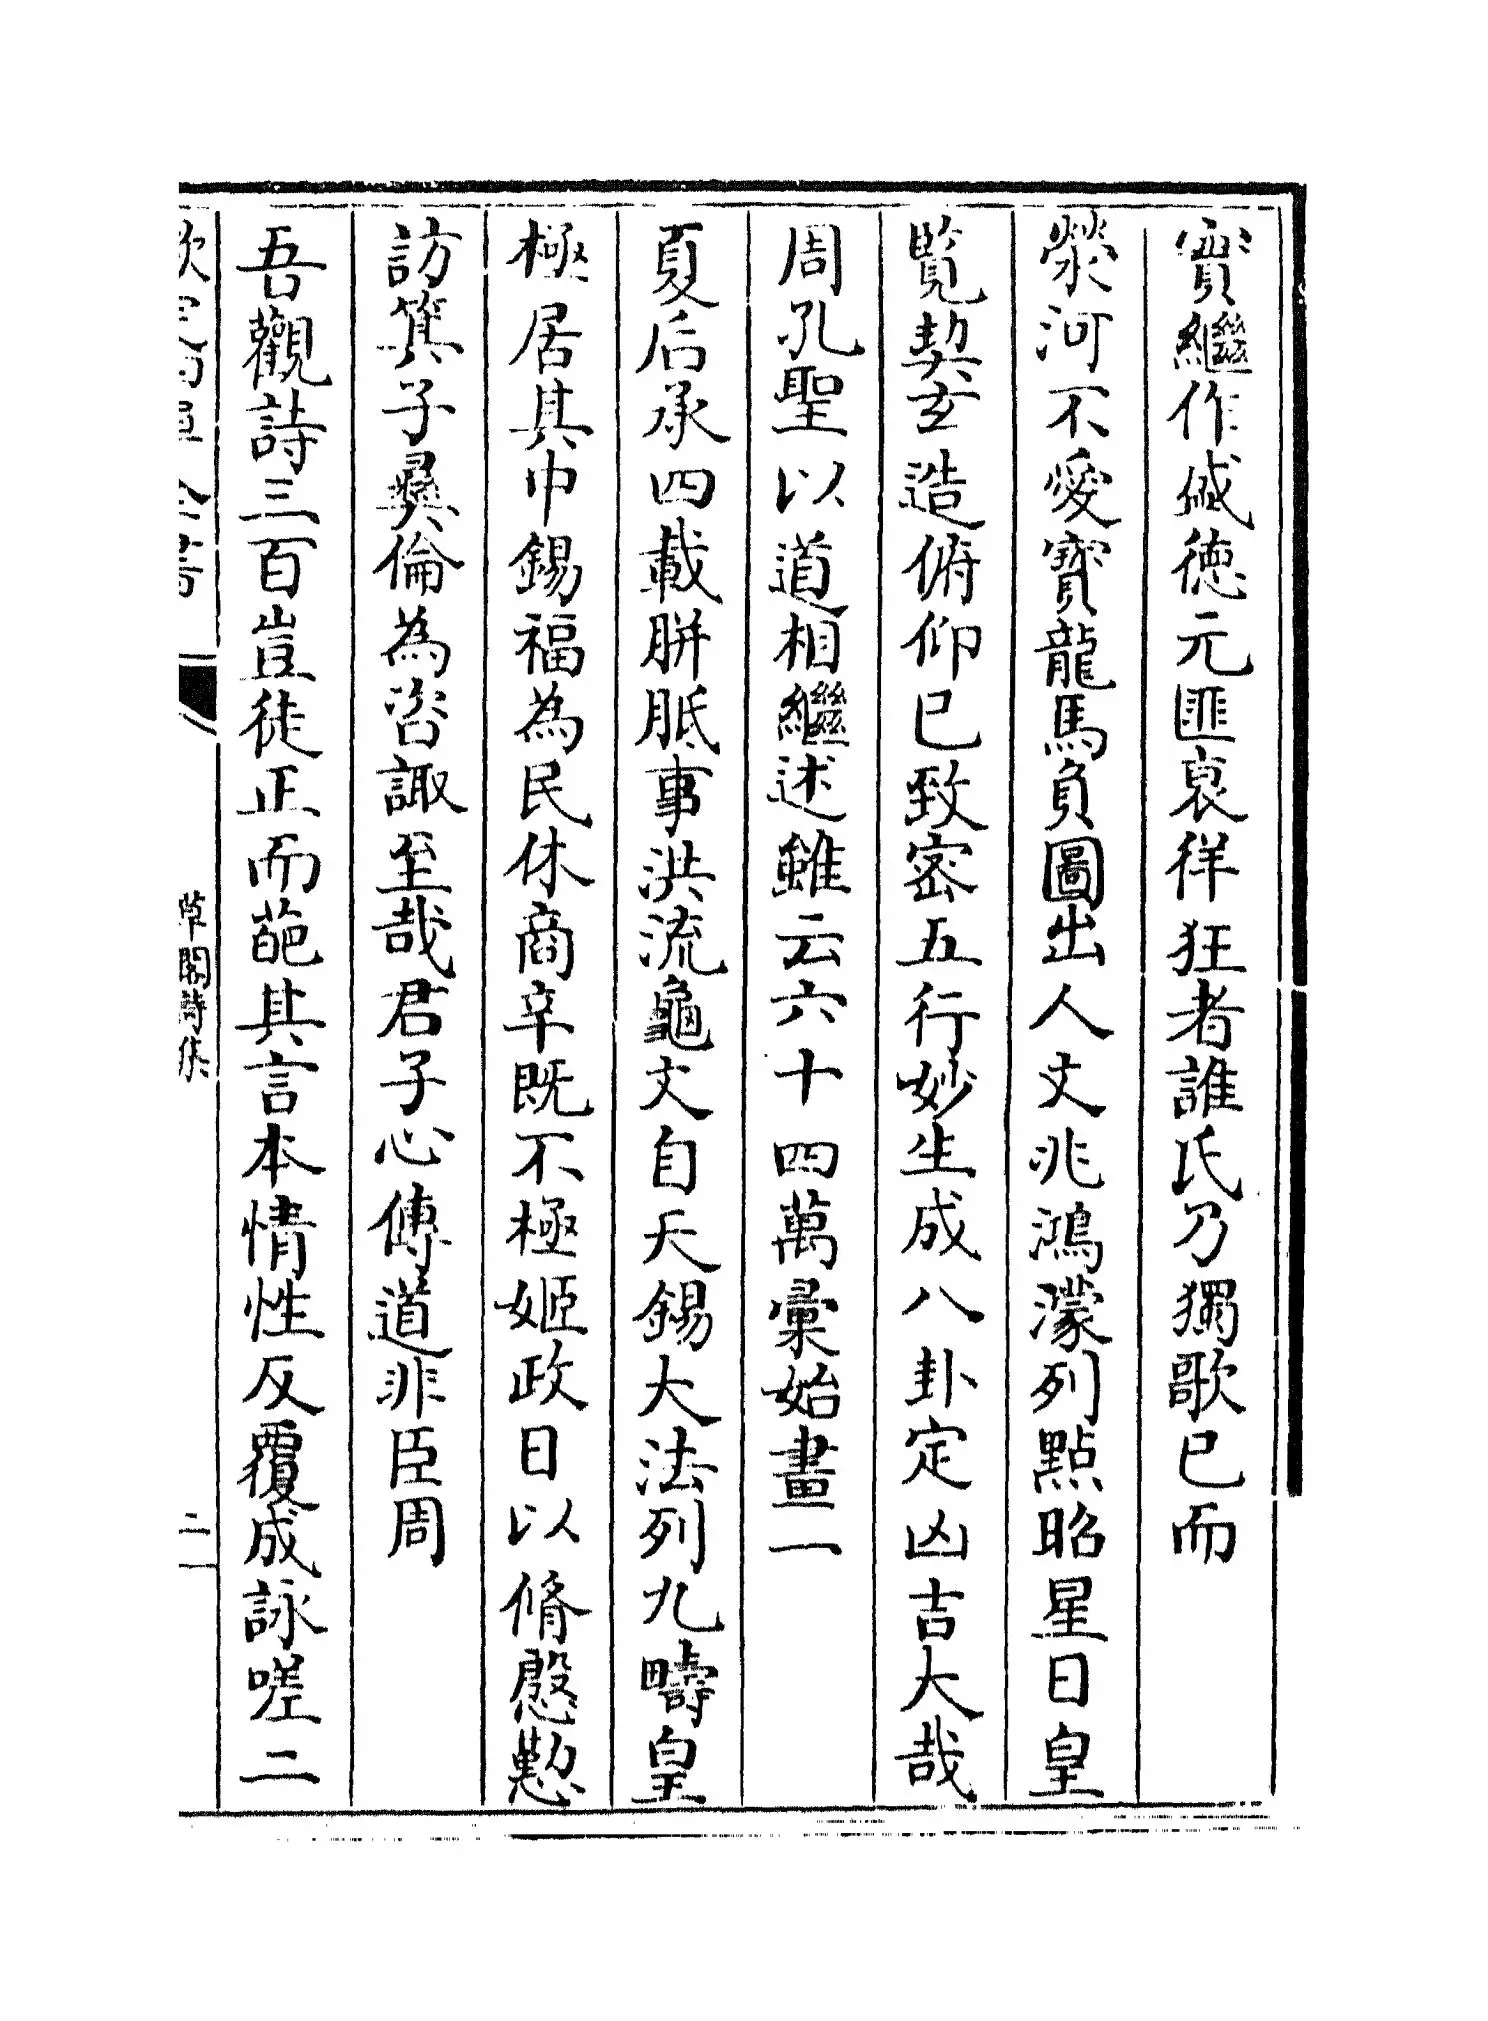 實繼作 德元匪哀徉狂者誰氏乃獨歌已而
滎河不愛寳龍馬負圖出人文兆鴻濛列點昭星日皇
覽契玄造俯仰已致密五行妙生成八卦定凶吉大哉
周孔聖以道相繼述雖云六十四萬彚始畫一
夏后承四載胼胝事洪流龜文自天錫大法列九疇皇
極居其中錫福為民休商辛既不極姬政日以脩慇懃
訪箕子彛倫為咨諏至哉君子心傳道非臣周
吾觀詩三百豈徒正而葩其言本情性反覆成詠嗟二
欽定四庫全書
草閣詩集
二